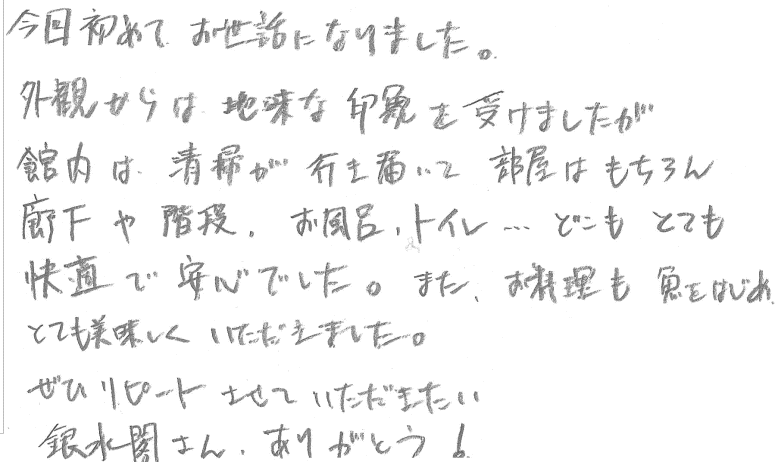 今回初めて お世話になりました。
外観からは 地味な 印象を 受けましたが
館内は 清掃が 行き届いて 部屋はもちろん
廊下や 階段、お風呂、トイレ… どこも とても
快適で 安心でした。また、お料理も 魚をはじめ
とても美味しく いただきました。
ぜひリピート させていただきたい
銀水閣さん、ありがとう！